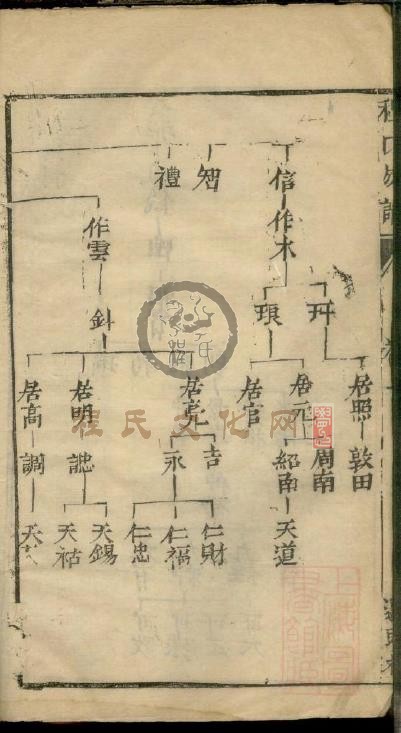 程氏
信 智 禮
作木 作雲
珢 斜
居照 居元 居官 居亮 居明 居高
敦田 周南 紹南 吉 永 調
天道 仁財 仁福 仁忠 天錫 天祜
程氏文化网
上海圖書館藏